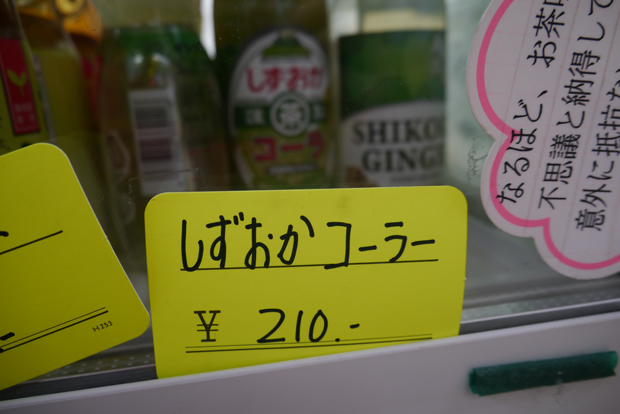 しずおか
茶
コーラ
SHIKO
GING
なるほど、お茶
不思議と納得して
意外に抵抗な
しずおかコーラー
¥ 210.-
H-253